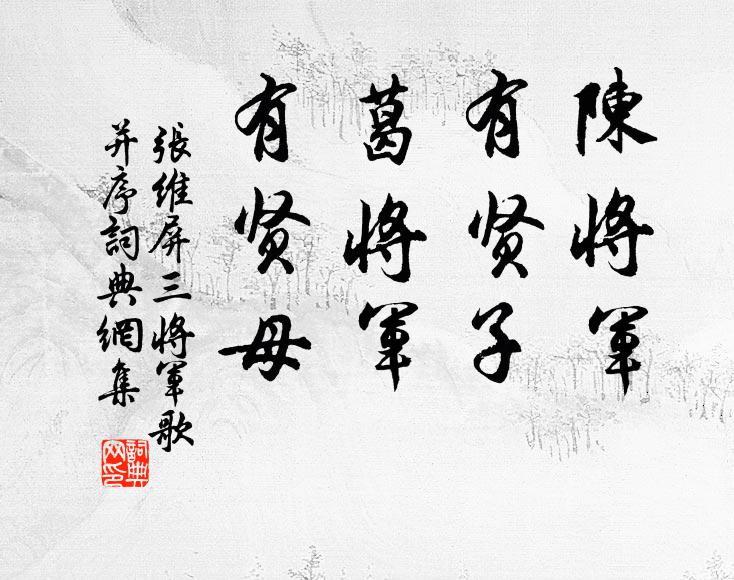 陳將軍
有贤子
葛將軍
有贤母
張維屏三將軍歌
并序詞典網集
詞典
网印